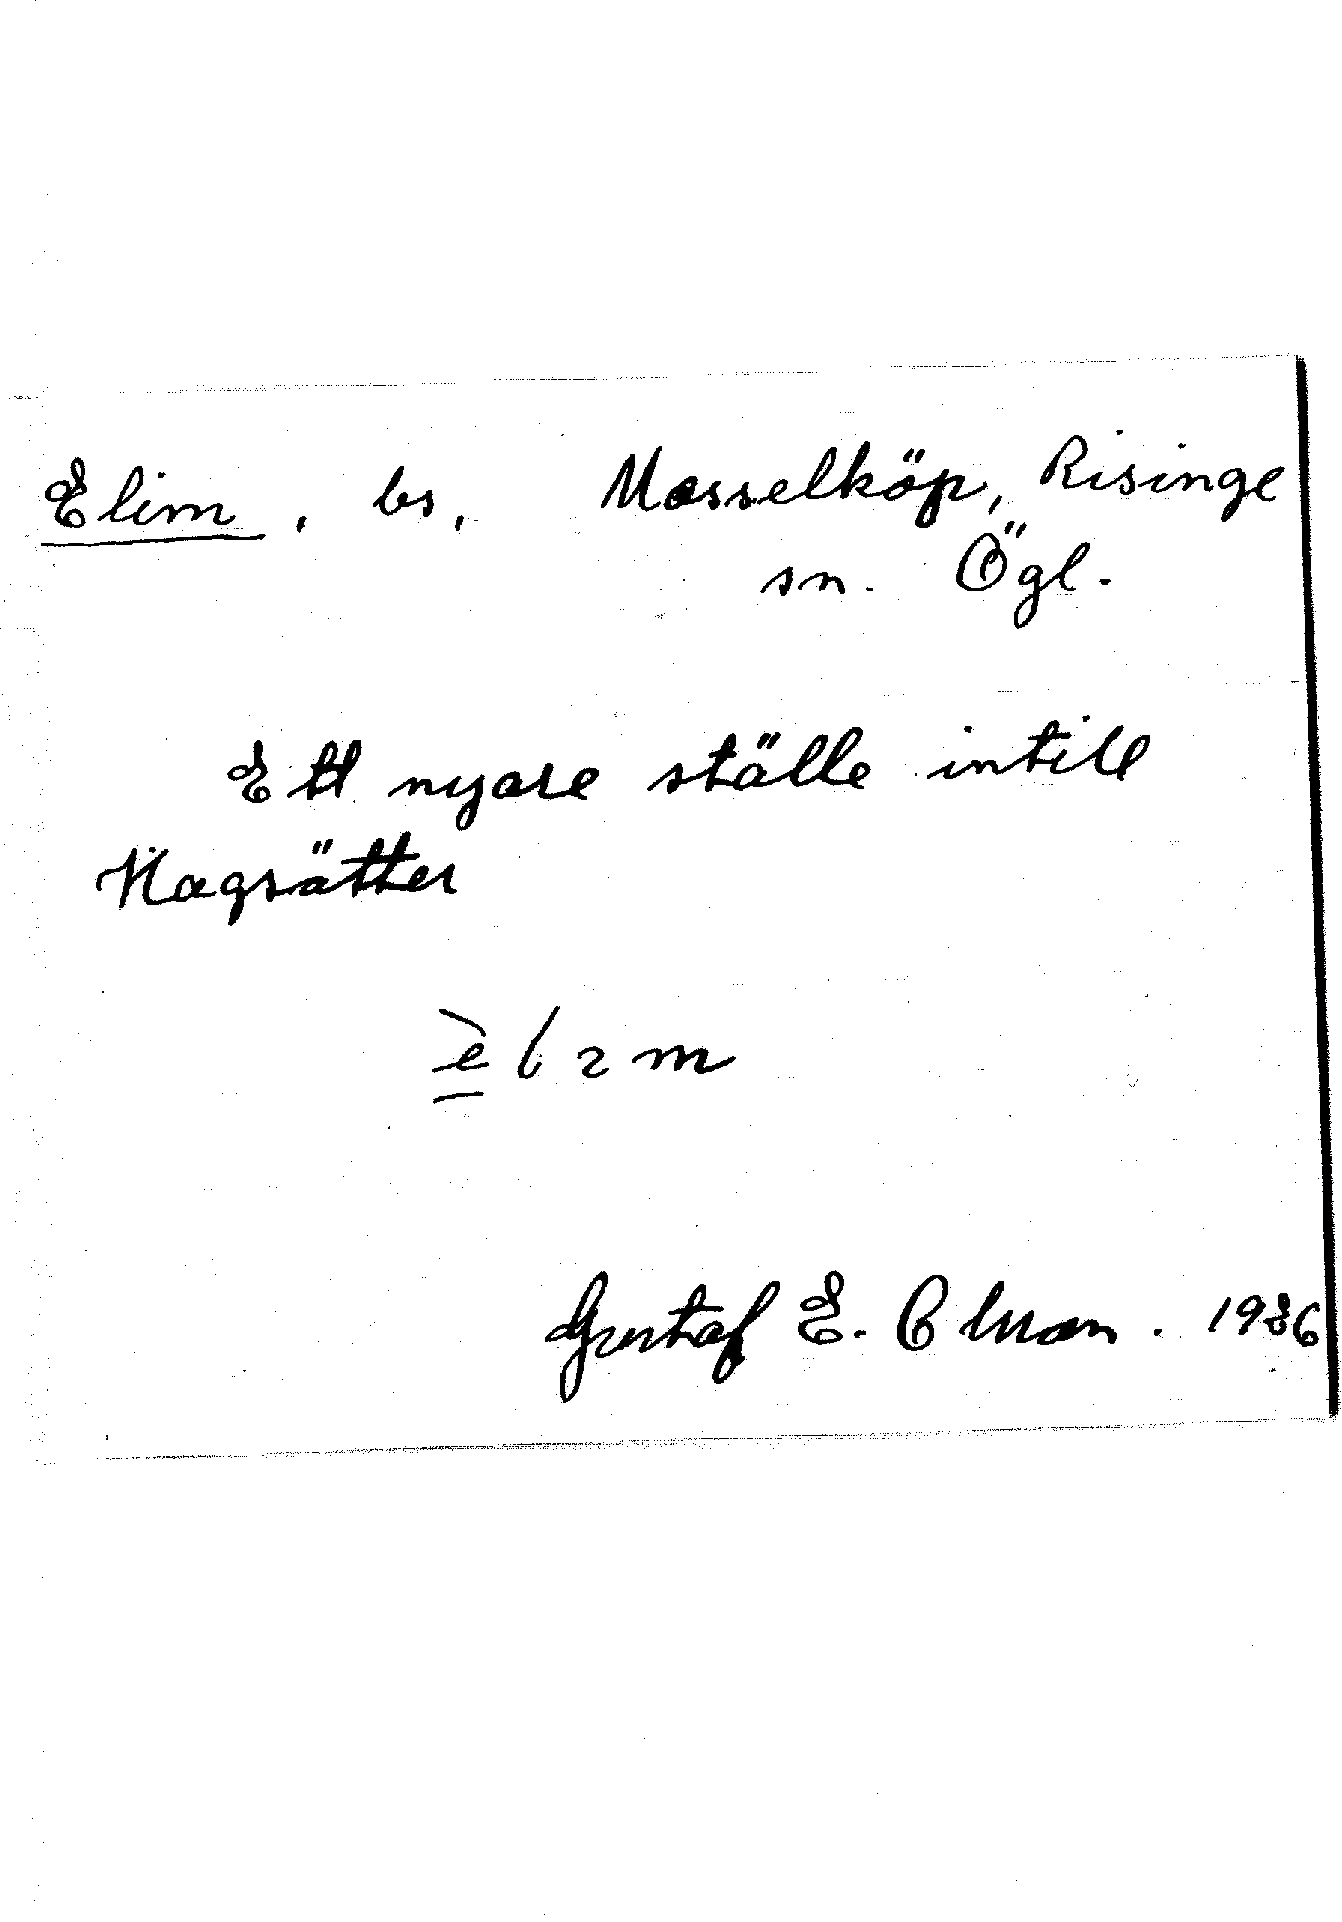 Elim, bs, Masselköp, Risinge
sn. Ögl.
Ett nyare ställe intill
Hagsätter
Gustaf E. 1936